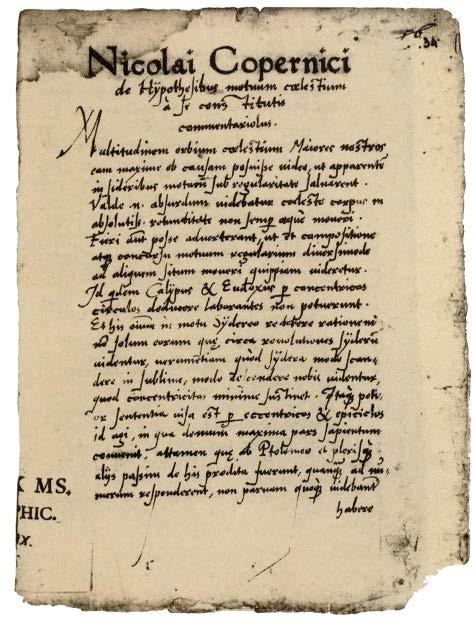 34
Nicolai Copernici
de Hypothesibus motuum cœlestium
à se constitutis
commentariolus.
Multitudinem orbium cœlestium Maiores nostros
eam maxime ob causam posuisse video, ut apparentē
in sideribus motum sub regularitate salvarent.
Valde n. absurdum videbatur cœleste corpus in
absolutiss. rotunditate non semp æque moveri.
Fieri aūt posse adverterant, ut et compositione
atq concursu motuum regularium diversimode
ad aliquem situm moveri quippiam videretur.
Id qdem Calippus & Eudoxus p concentricos
circulos deducere laborantes non potuerunt.
Et his oīum in motu sydereo reddere rationem
nō solum eorum quę circa revolutiones syderū
videntur, verumetiam quod sydera modo scan-
dere in sublime, modo descendere nobis videntur,
quod concentricitas minime sustinet. Itaq poti-
or sententia visa est p eccentricos & epiciclos
id agi, in qua demum maxima pars sapientum
convenit. attamen quę ab Ptolomeo et plerisq
alijs passim de his prodita fuerunt, quanq ad nu-
merum responderent, non parvam quoq videbant
habere
X MS.
PHIC.
IX.